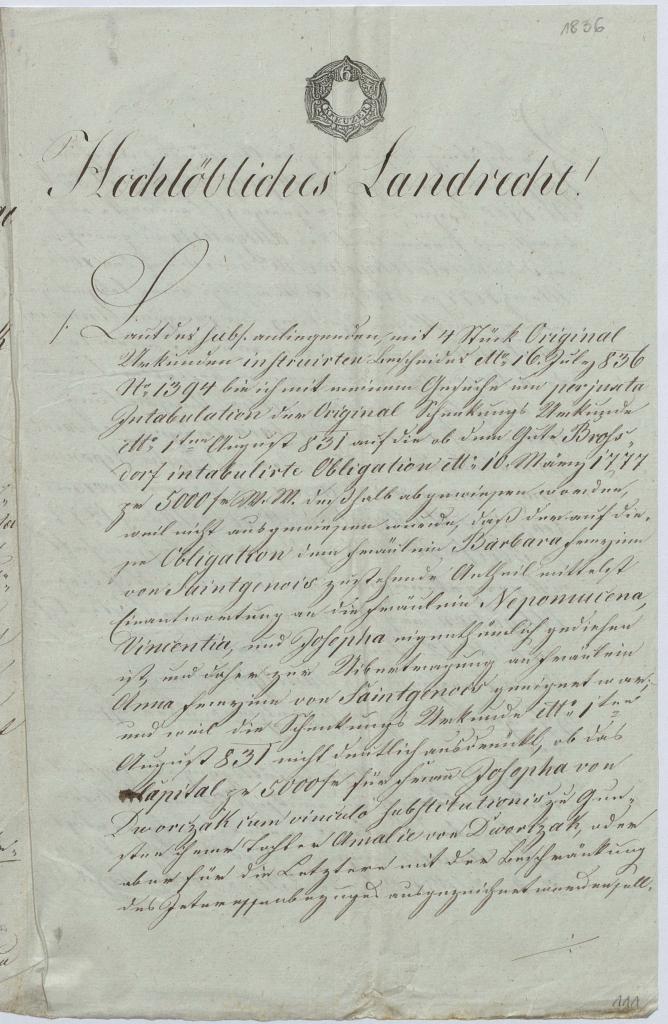 1836
6
KREUZER
Hochlöbliches Landrecht!
/. Laut des subs. anliegenden, mit 4 Stück Original
Urkunden instruirten Bescheides dtto 16. July 836
No 1394 bin ich mit meinem Gesuche um
Intabulation der Original Schenkungs Urkunde
dtto 1ten August 831 auf die ob dem Gute Bross-
dorf intabulirte Obligation dtto 10. März 1777
pr 5000 fr W. W. deßhalb abgewiesen worden,
weil nicht ausgewiesen wurde, daß der auf die-
se Obligation dem Fräulein Barbara Freyinn
von Saintgenois zustehende Antheil mittelst
Einantwortung an die Fräulein Nepomucena,
Vincentia, und Josepha eigenthümlich gediehen
ist, und daher zur Uibertragung an Fräulein
Anna Freyinn von Saintgenois geeignet war;
und weil die Schenkungs Urkunde dtto 1ten
August 831 nicht deutlich ausdrückt, ob das
Capital pr 5000 fr für Frau Josepha von
Dworczak cum vinculo substitutionis zu Gun-
sten ihrer Tochter Amalie von Dworczak, oder
aber für die Letztere mit der Beschränkung
des Interessenbezuges ausgezeichnet werden soll.
111